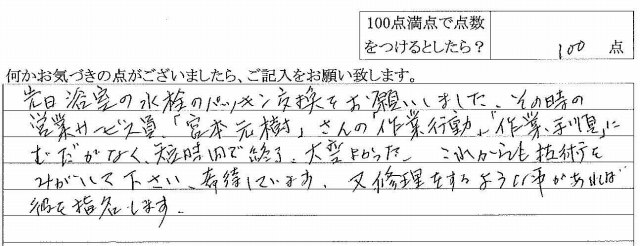 100点満点で点数
をつけるとしたら？
100 点
何かお気づきの点がございましたら、ご記入をお願い致します。
先日浴室の水栓のパッキン交換をお願いしました、その時の
営業サービス員、「宮本元樹」さんの「作業行動」、「作業、手順」に
むだがなく、短時間で終了、大変よかった、これからも技術を
みがいて下さい、期待しています、又修理をするような事があれば
彼を指名します。